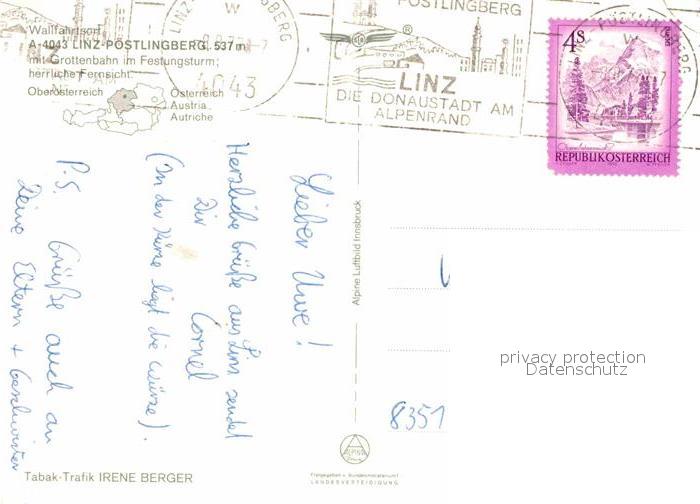 Wallfahrtsort
A-4043 LINZ-PÖSTLINGBERG, 537 m
mit Grottenbahn im Festungsturm;
herrliche Fernsicht.
Oberösterreich
Österreich
Austria
Autriche
4043
PÖSTLINGBERG
LINZ
DIE DONAUSTADT AM
ALPENRAND
4 S
REPUBLIK ÖSTERREICH
Lieber Uwe!
Herzliche Grüße aus Linz sendet
Dir
Cornel
(In der Kürze liegt die Würze).
P.S. Grüße auch an
Deine Eltern + Geschwister
Alpine Luftbild Innsbruck
privacy protection
Datenschutz
8351
ALPINE
Freigegeben v. Bundesministerium f.
LANDESVERTEIDIGUNG
Tabak-Trafik IRENE BERGER